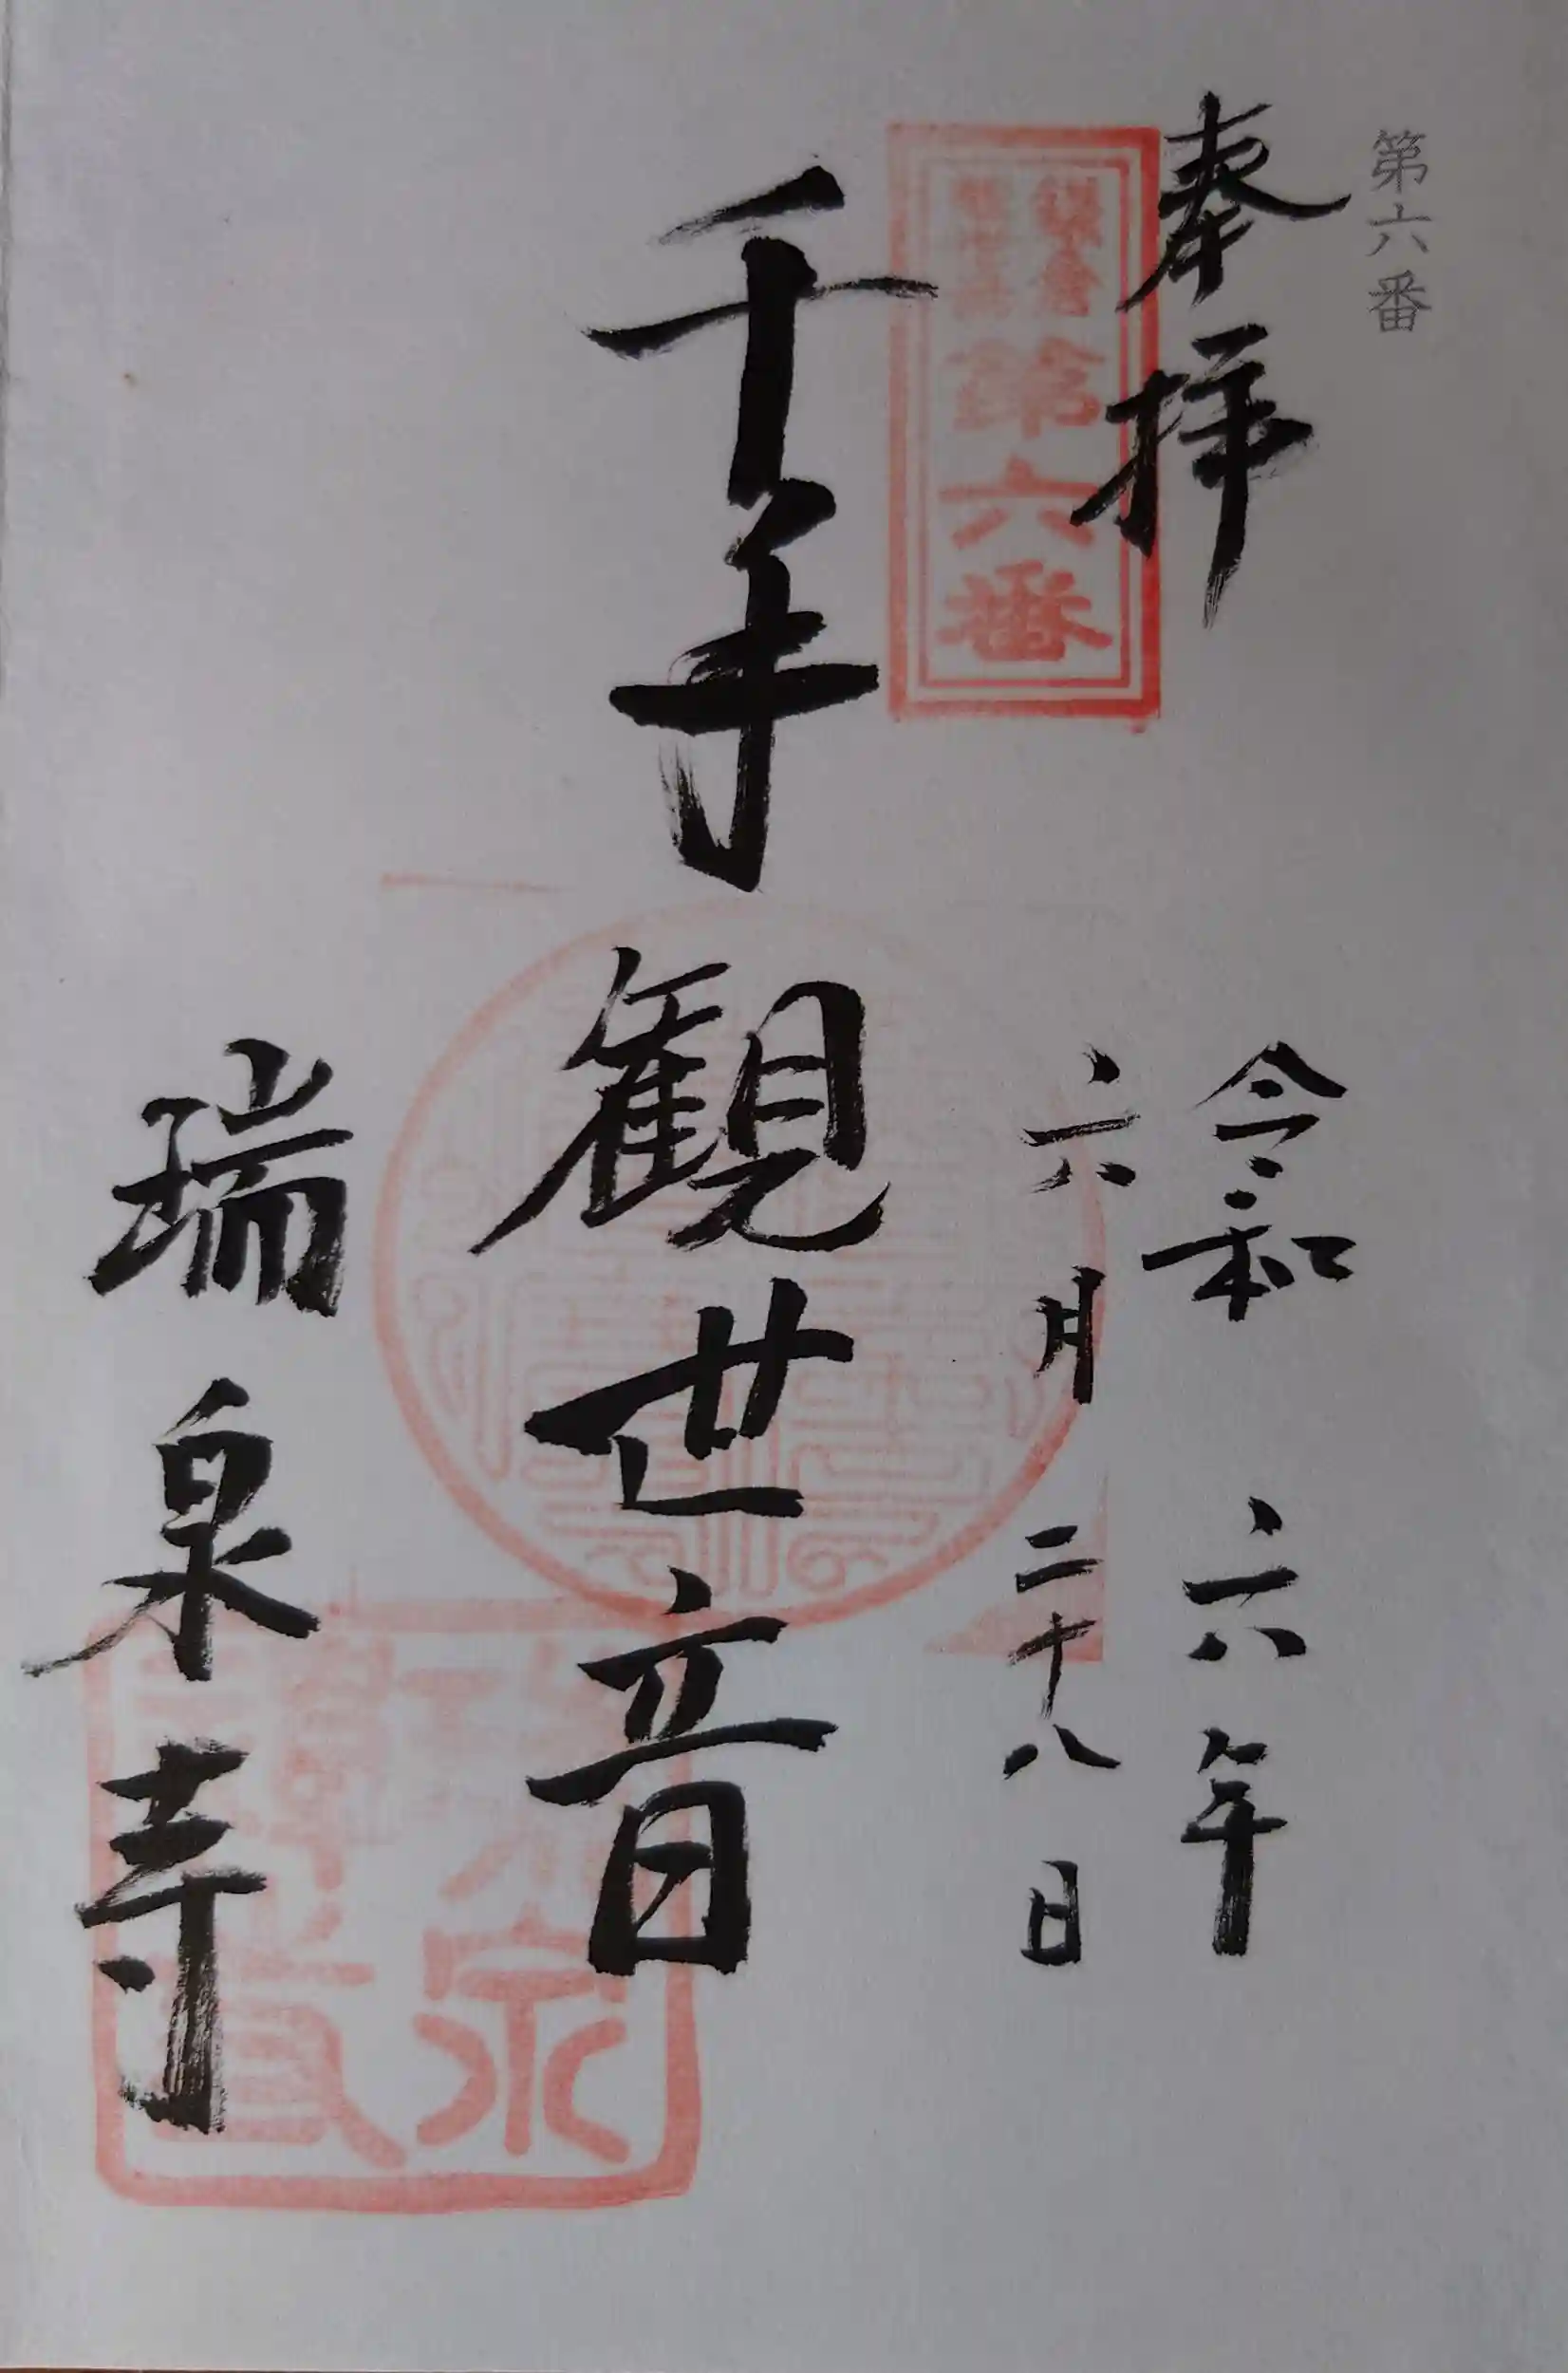 第六番
奉拝
令和六年
六月二十八日
第六番
千手観世音
瑞泉寺